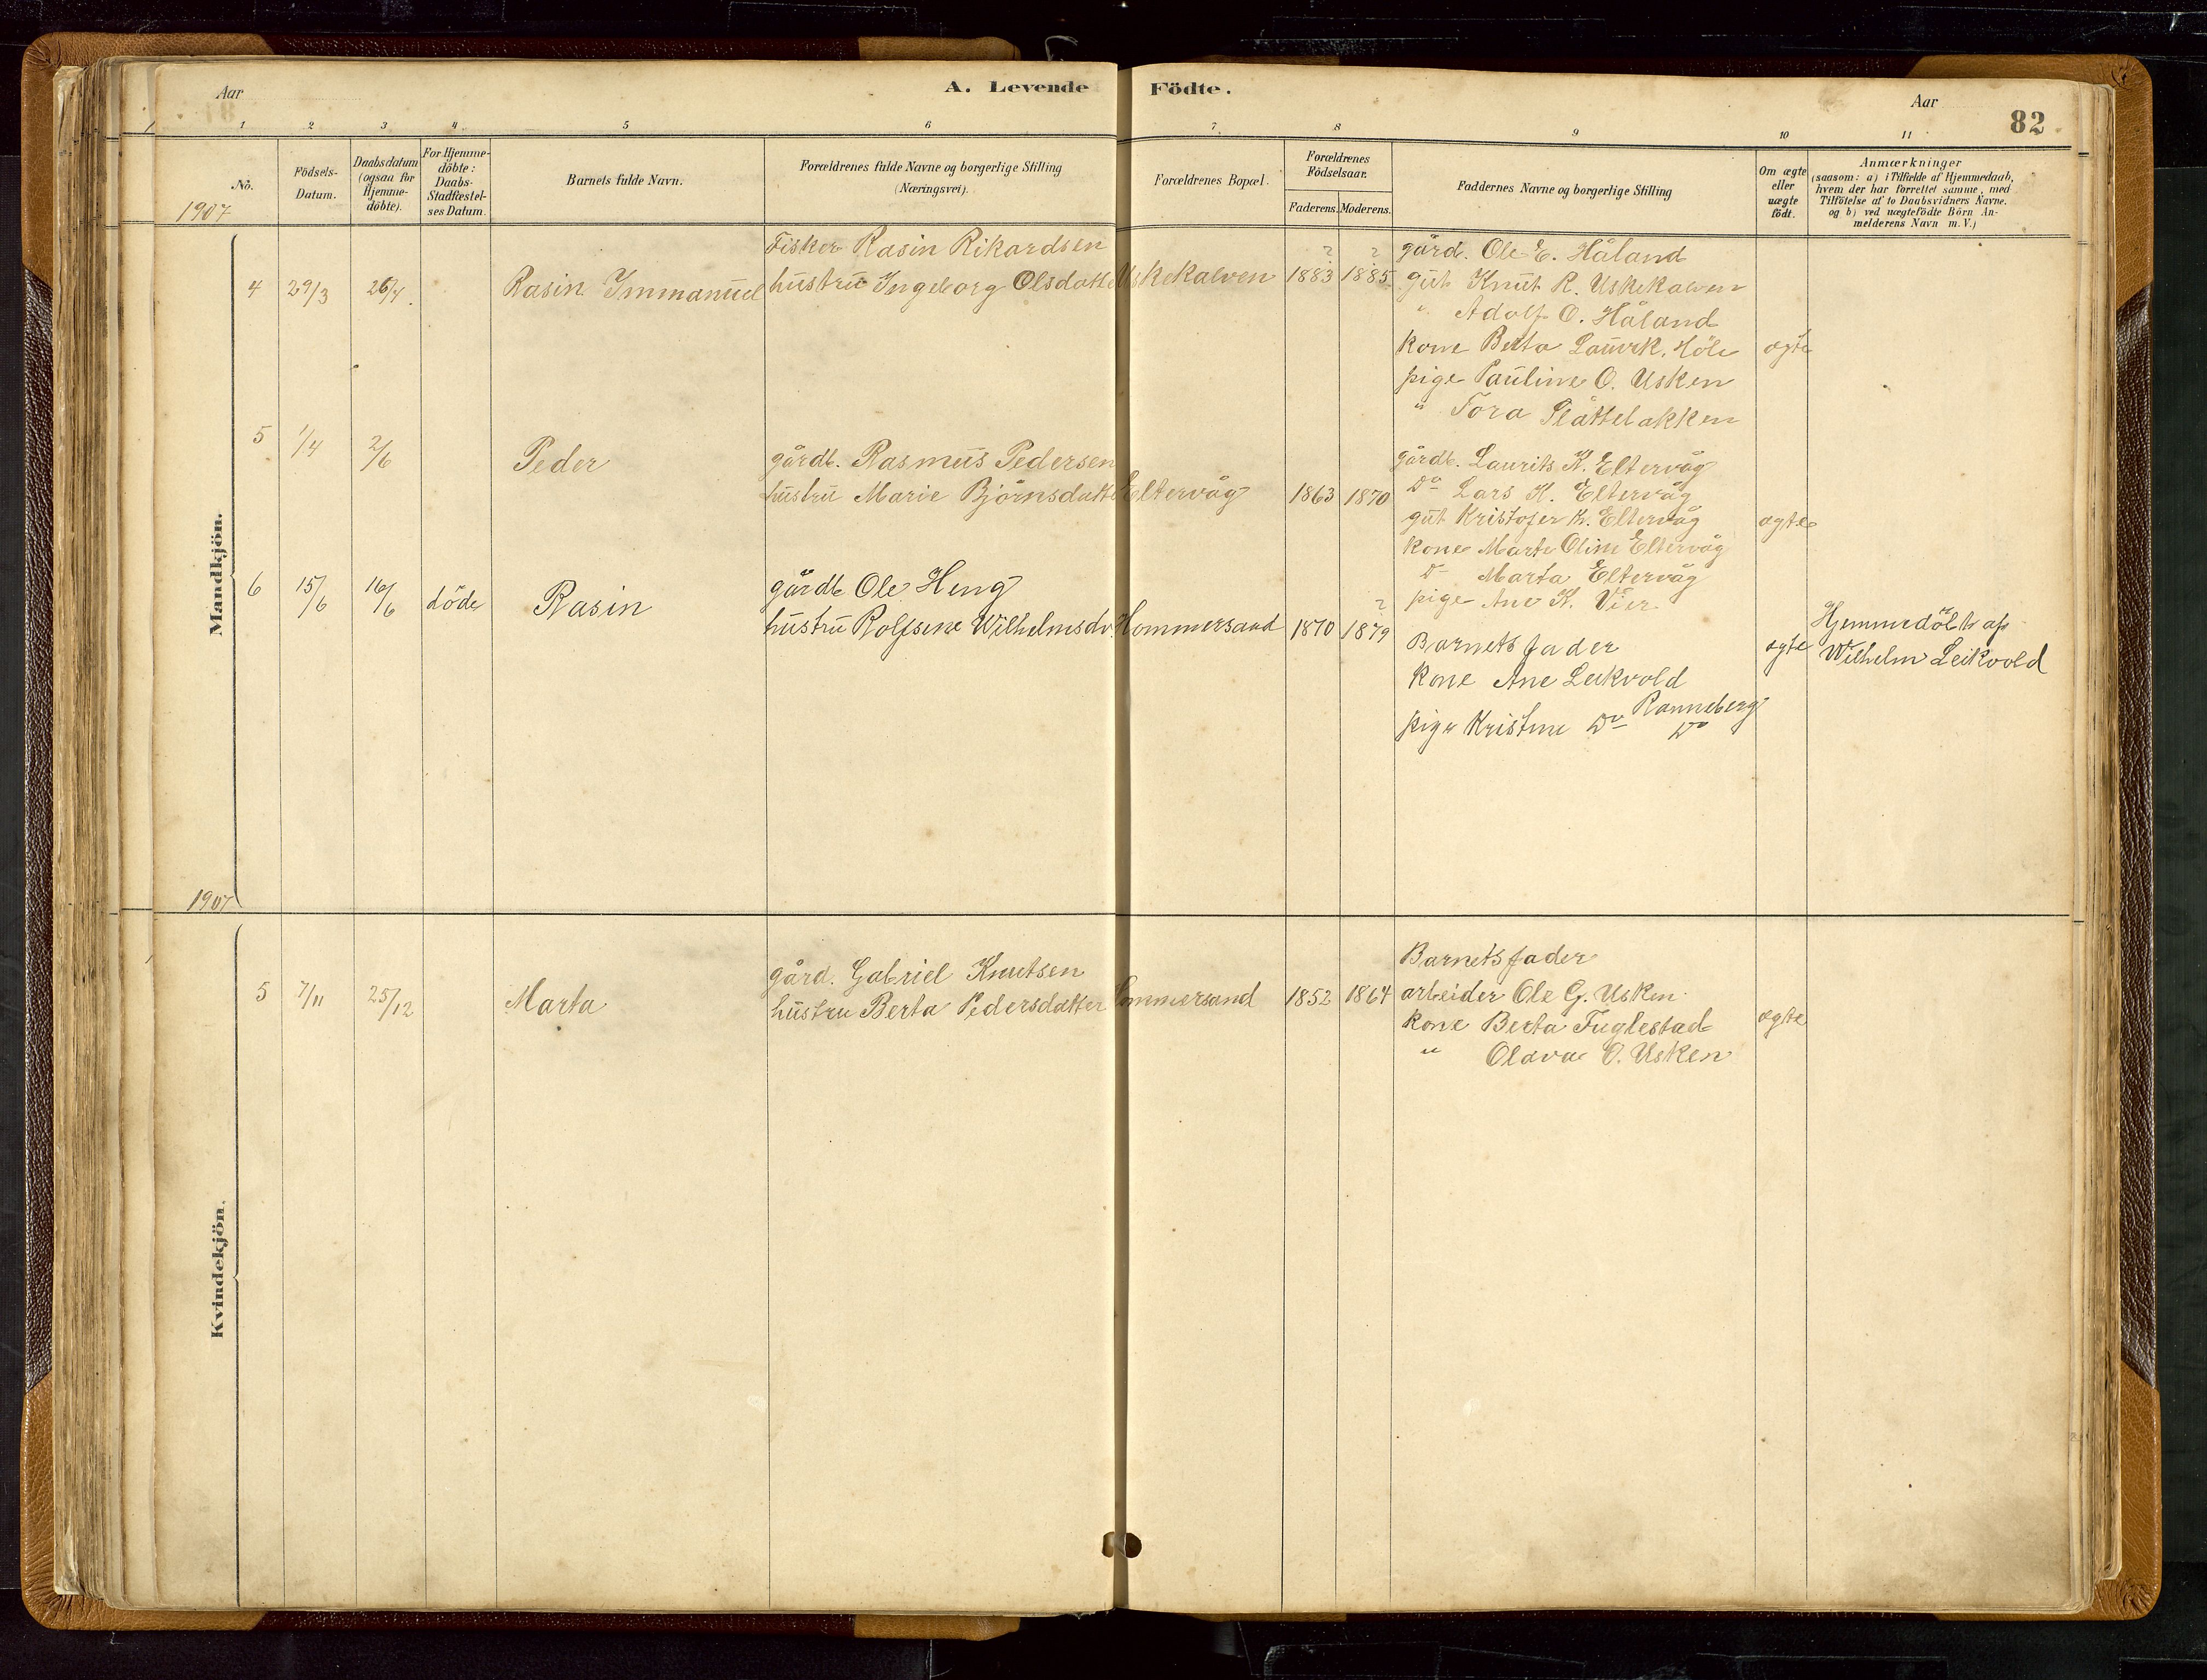 Aar
A. Levende Födte.
Aar
82
1 2 3 4 5 6 7 8 9 10 11
No.
Födsels-Datum.
Daabsdatum (ogsaa for Hjemme-döbte).
For Hjemme-döbte: Daabs-Stadfæstel-ses Datum.
Barnets fulde Navn.
Forældrenes fulde Navne og borgerlige Stilling (Næringsvei).
Forældrenes Bopæl.
Forældrenes Födselsaar.
Faderens. Moderens.
Faddernes Navne og borgerlige Stilling
Om ægte eller uægte födt.
Anmærkninger (saasom: a) i Tilfælde af Hjemmedaab, hvem der har forrettet samme, med Tilföielse af to Daabsvidners Navne. og b) ved uægtefödte Börn An-melderens Navn m. V.)
1907
Mandkjön.
Fisker Rasin Rikardsen
4 29/3 26/4. Rasin Immanuel hustru Ingeborg Olsdatte Uskekalven ? 1883 ? 1885
gård. Ole E. Håland
gut Knut R. Uskekalven
" Adolf O. Håland
kone Berta Laurk. Höle ægte
pige Pauline O. Usken
" Tora Slåttebakken
5 1/4 2/6 Peder gårdb. Rasmus Pedersen
hustru Marie Björnsdatte Eltervåg 1863 1870
gårdb. Laurits K. Eltervåg
Do Lars K. Eltervåg
gut Kristofer K. Eltervåg ægte
kone Marte Oline Eltervåg
Do Marta Eltervåg
pige Ane K. Vier
6 15/6 16/6 döde Rasin gårdb Ole Heng
hustru Rolfsene Wilhelmsd. Hommersand 1870 ? 1879
Barnets fader ægte Hjemmedöbt af
Wilhelm Leikvold
kone Ane Leikvold
Ranneberg
pige Kristine Do Do
1907
Kvindekjön.
5 7/11 25/12 Marta gård. Gabriel Knutsen
hustru Berta Pedersdatter Hommersand 1852 1864
Barnets fader
arbeider Ole G. Usken
kone Berta Fuglestad ægte
" Olava O. Usken